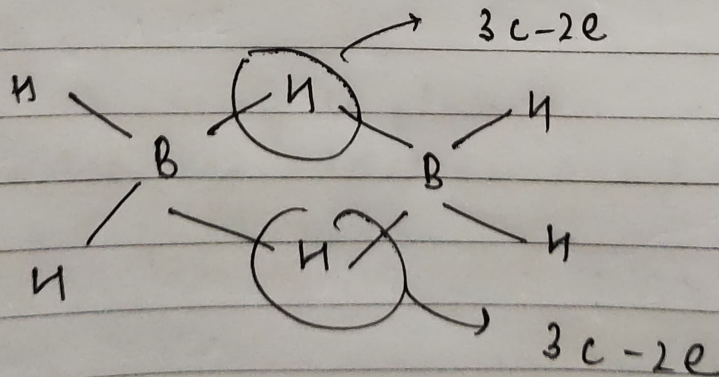 3c-2e
H H H
B B
H H H
3c-2e